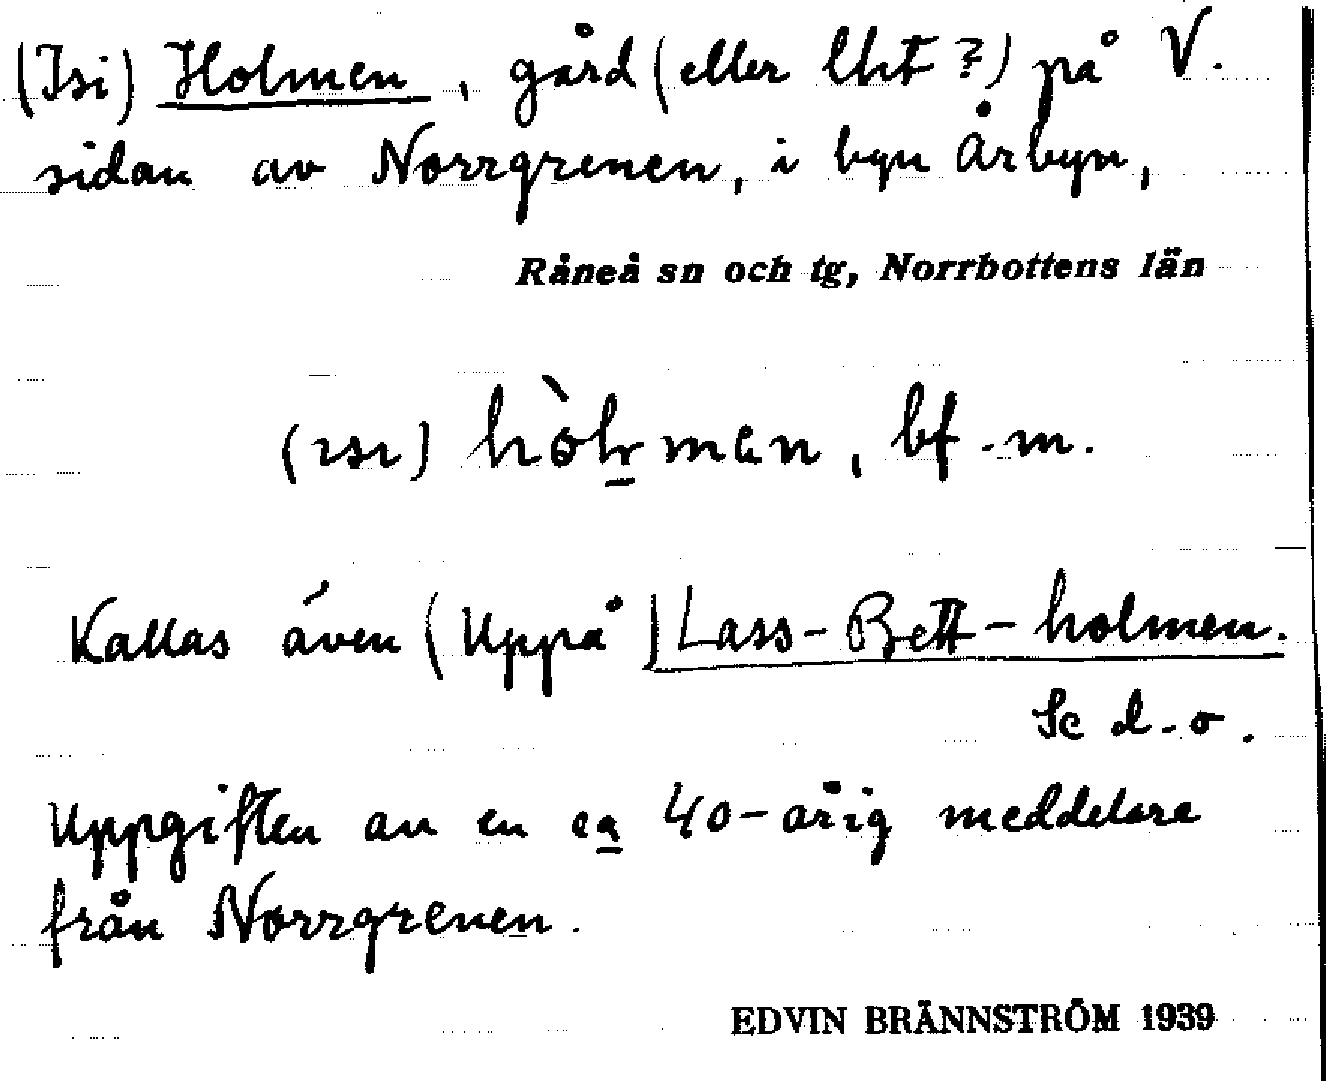 (Isi) Holmen, gård (eller lht ?) på V.
sidan av Norrgrenen, i byn Årbyn,
Råneå sn och tg, Norrbottens län
(ısı) hòlmɑn, bf. m.
Kallas även (Uppå) Lass-Bett-holmen.
Se d. o.
Uppgiften av en ca 40-årig meddelare
från Norrgrenen.
EDVIN BRÄNNSTRÖM 1939